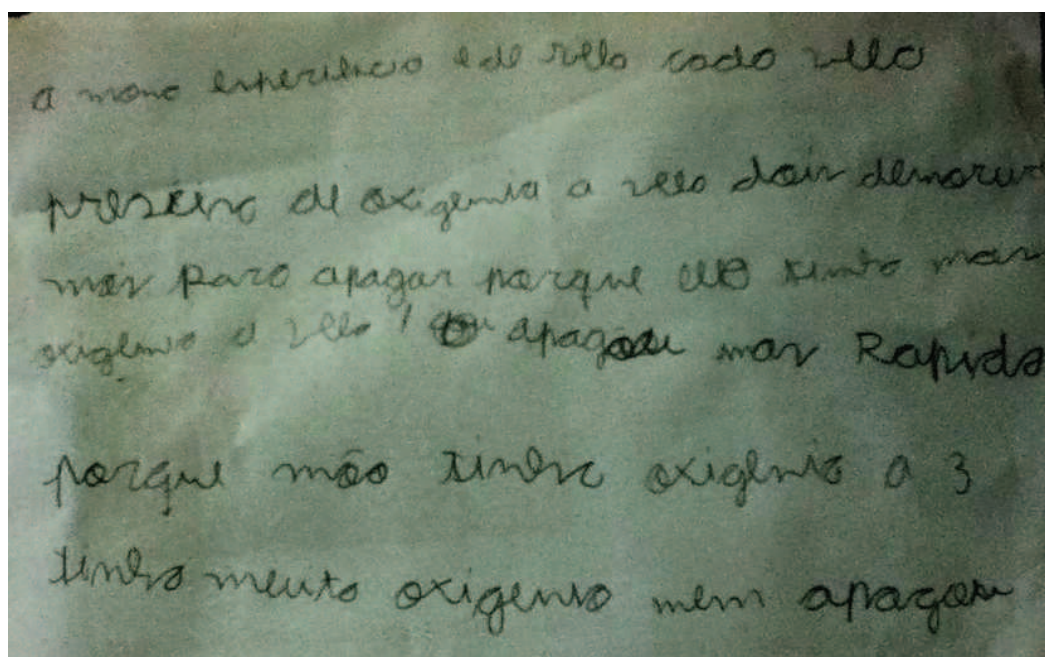 a mona esperiencio e de vela cado vela
presceno de oxigenia a vela dois demorou
mais paro apagar porque ela tinto mas
oxigenio a vela 1 apagou mas Rapido
porque não tinha oxigênio a 3
tinho meuto oxigenio nem apagou